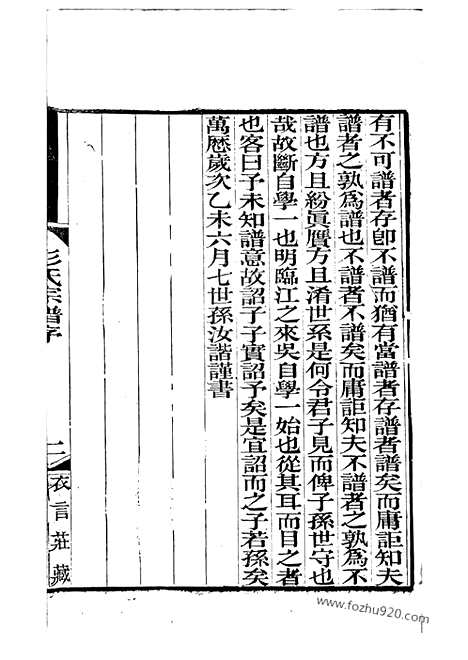 有不可譜者存卽不譜而猶有當譜者存譜者譜矣而庸詎知夫
譜者之孰爲譜也不譜者不譜矣而庸詎知夫不譜者之孰爲不
譜也方且紛眞贋方且淆世系是何令君子見而俾子孫世守也
哉故斷自學一也明臨江之來吳自學一始也從其耳而目之者
也客曰予未知譜意故詔子子實詔予矣是宜詔而之子若孫矣
萬歷歲次乙未六月七世孫汝諧謹書
彭氏宗譜序
二
衣言莊藏
www.fozhu920.com